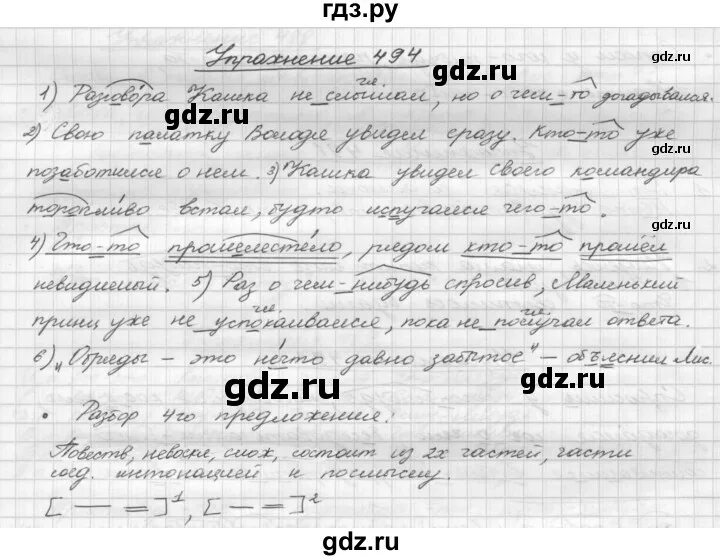 гдз.ру
Упражнение 494
1) Разговора Кашка не слышал, но о чем-то догадывался.
2) Свою палатку Володя увидел сразу. Кто-то уже
гдз.ру
позаботился о нем. 3) Кашка увидел своего командира
торопливо встал, будто испугался чего-то.
гдз.ру
4) Что-то прошелестело, рядом кто-то прошёл
невидимый. 5) Раз о чем-нибудь спросив, Маленький
принц уже не успокаивался, пока не получал ответа.
гл.
гл.
гл.
6) "Обряды - это нечто давно забытое" - объяснил Лис.
гдз.ру
гдз.ру
• Разбор 4го предложения:
Повеств, невоскл, слож, состоит из 2х частей, части
соед. интонацией и по смыслу.
[— =]¹, [— =]²
гдз.ру